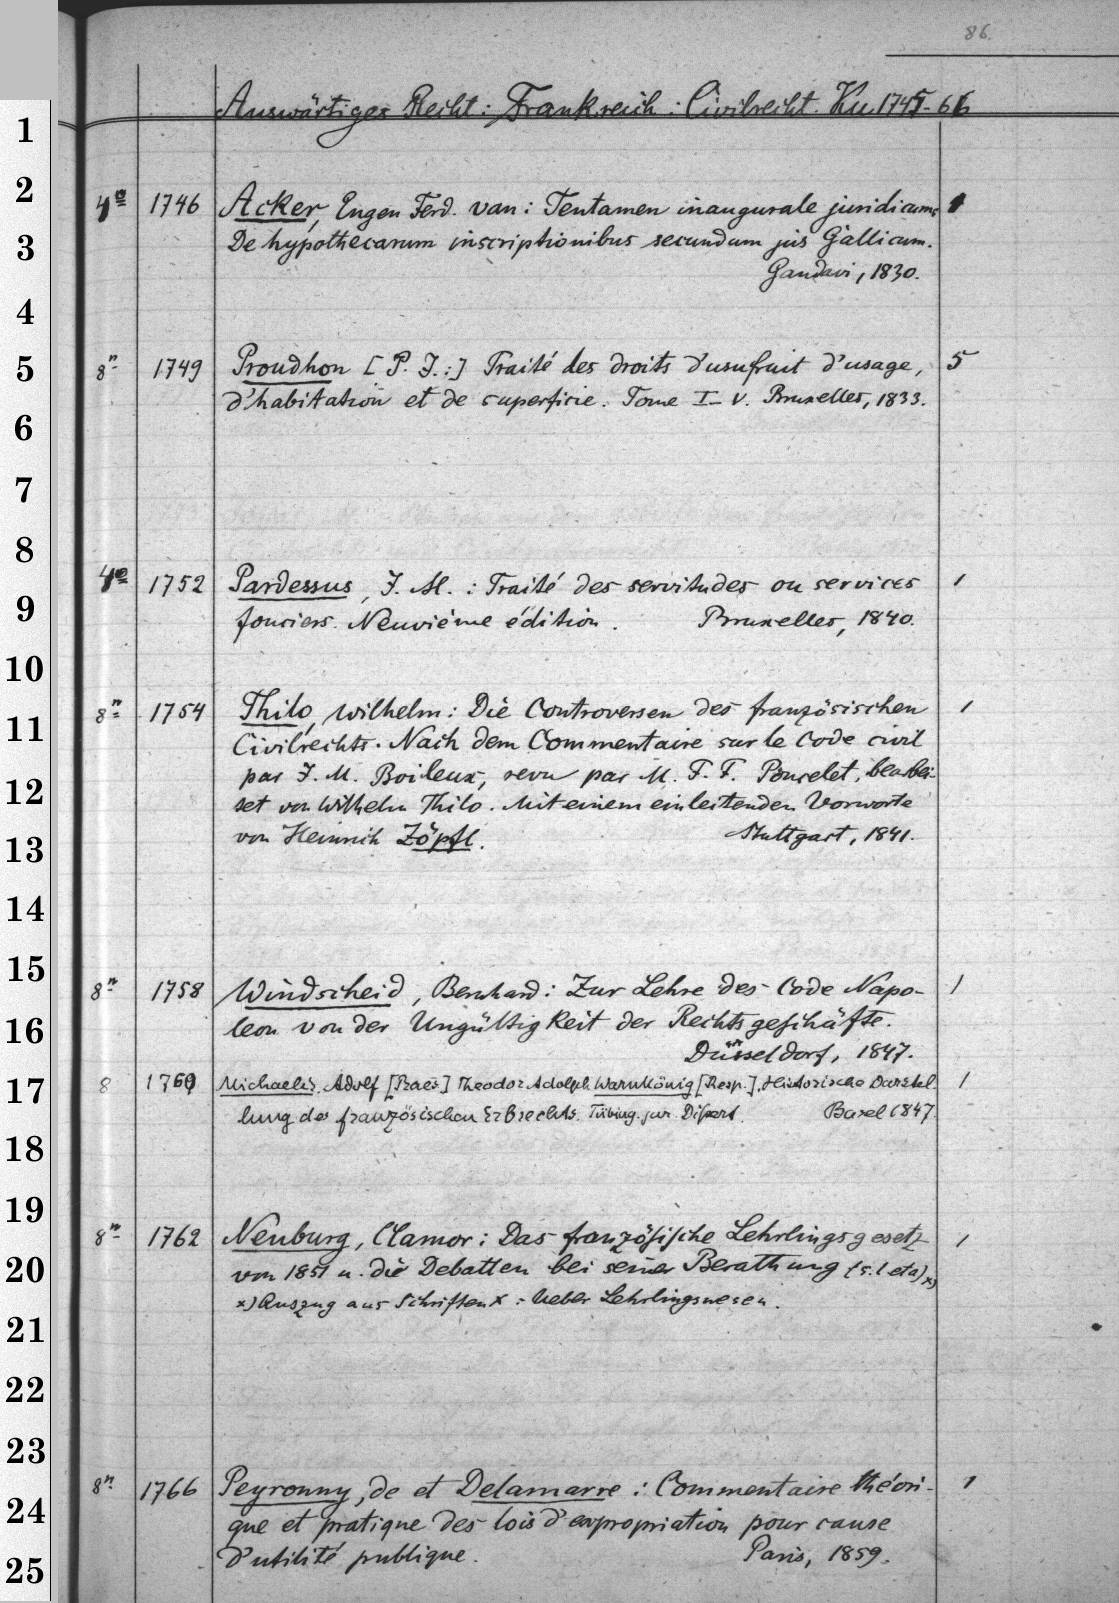 86.
Auswärtiges Recht: Frankreich: Civilrecht. Ku 1745-66
1
2
4º 1746 Acker, Eugen Ferd. van: Tentamen inaugurale juridicum: 1
3
De hypothecarum inscriptionibus secundum jus Gallicum.
Gandavi, 1830.
4
5
8º 1749 Proudhon [P. J.:] Traité des droits d'usufruit d'usage, 5
d'habitation et de superficie. Tome I-V. Bruxelles, 1833.
6
7
8
4º 1752 Pardessus, J. M.: Traité des servitudes ou services 1
9
fonciers. Neuvième édition. Bruxelles, 1840.
10
8º 1754 Thilo, Wilhelm: Die Controversen des französischen 1
11
Civilrechts. Nach dem Commentaire sur le Code civil
par J. M. Boileux, revu par M. F. F. Poncelet, bearbei-
12
tet von Wilhelm Thilo. Mit einem einleitenden Vorworte
von Heinrich Zöpfl. Stuttgart, 1841.
13
14
15
8º 1758 Windscheid, Bernhard: Zur Lehre des Code Napo- 1
16
leon von der Ungültigkeit der Rechtsgeschäfte.
Düsseldorf, 1847.
17
8 1760 Michaelis, Adolf [Praes] Theodor Adolph Warnkönig [Resp.]. Historische Darstel 1
lung des französischen Erbrechts. Tübing. jur. Dissert. Basel 1847.
18
19
8º 1762 Neuburg, Clamor: Das französische Lehrlingsgesetz 1
20
von 1851 u. die Debatten bei seiner Berathung (s. l et a) x)
x) Auszug aus Schriften x: Ueber Lehrlingswesen.
21
22
23
8º 1766 Peyronny, de et Delamarre: Commentaire théori- 1
24
que et pratique des lois d'expropriation pour cause
d'utilité publique. Paris, 1859.
25